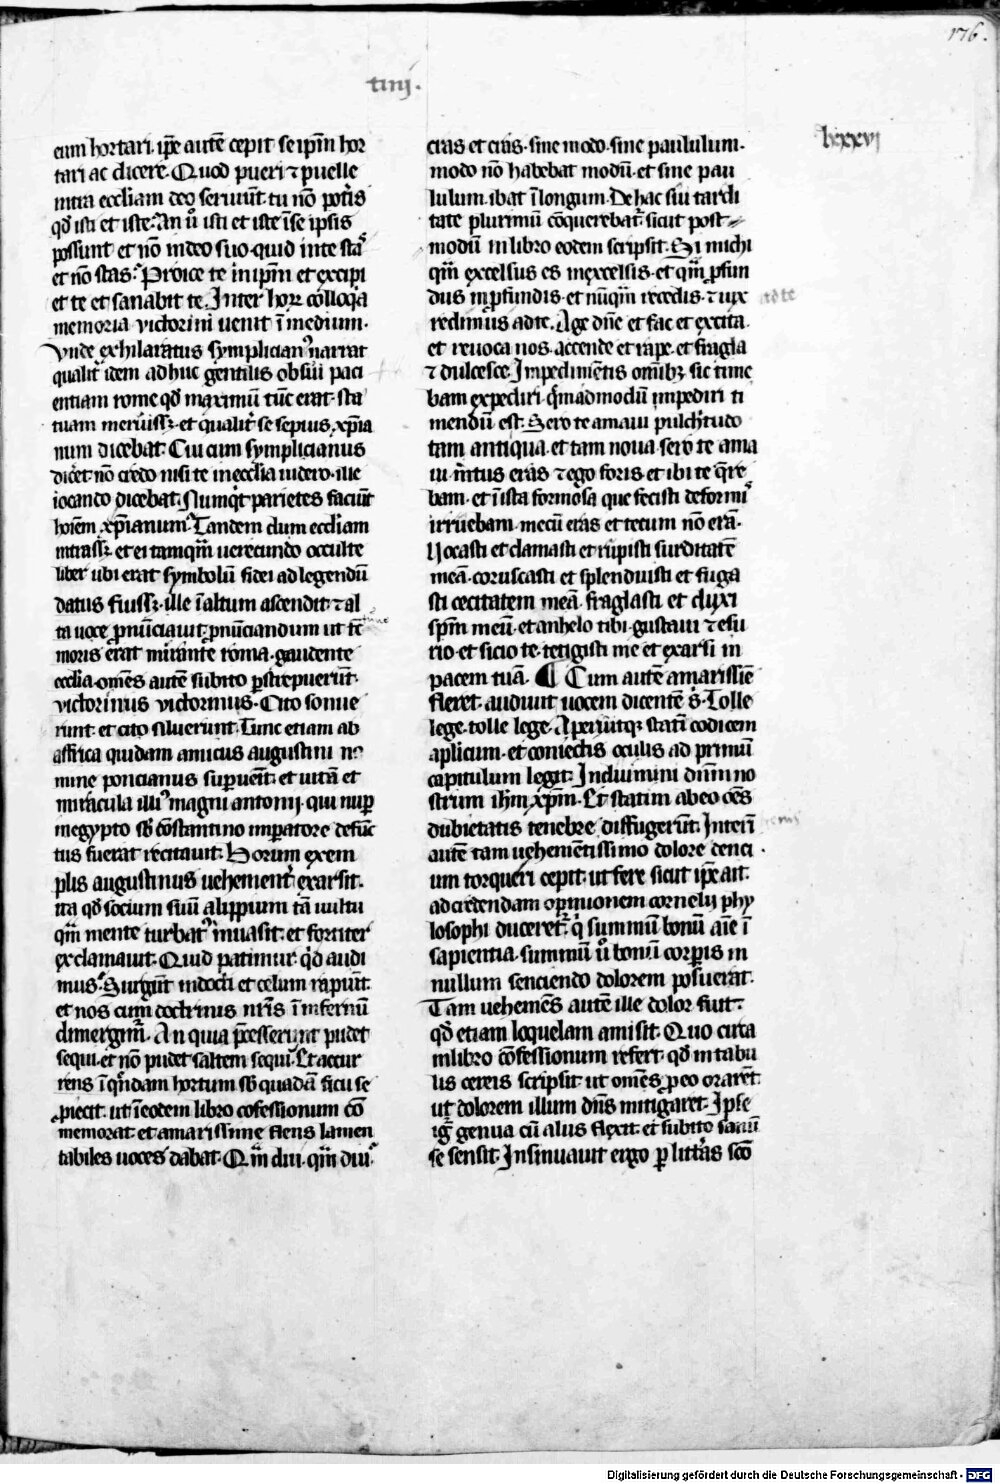 176.
tini.
lxxxvi
eum hortari. ip̄e autē cepit se ip̄m hor
tari ac dicere. Quod pueri ⁊ puelle
intra eccl̄iam deo seruiūt. tu nō pot̄is
qd̄ isti et iste. An ů isti et iste ī se ipsis
possunt et nō in deo suo. quid in te stas
et nō stas. Proice te in ip̄m et excipi
et te et sanabit te. Inter hor̄ colloqͣ
memoria victorini uenit ī medium.
Vnde exhilaratus symplicianꝰ narrat
qualit̄ idem ad huc gentilis ob sui paci
entiam rome qd̄ maximū tūc erat. sta
tuam meruiss̄. et qualit̄ se sepius xp̄ia
num dicebat. Cui cum symplicianus
dic̄et. nō credo nisi te in eccl̄ia uidero. ille
iocando dicebat. Nunqͥt parietes faciūt
hoīem xp̄ianum. Tandem dum eccl̄iam
intrass̄. et ei tamqͣm uerecundo occulte
liber ubi erat symbolū fidei ad legendū
datus fuiss̄. ille ī altum ascendit. ⁊ al
ta uoce ꝓnūciauit. ꝓnūciandum ut tē
moris erat mirante roma. gaudente
eccl̄ia. om̄es autē subito ꝑstrepuerūt.
victorinus victorinus. Cito sonue
runt. et cito siluerunt. Tunc etiam ab
affrica quidam amicus augustini no
mine poncianus suꝑuēit. et uitā et
miracula illiꝰ magni antonij. qui nuꝑ
in egypto sb̄ cōstantino imꝑatore defūc
tus fuerat recitauit. Horum exem
plis augustinus uehement̄ exarsit.
ita qd̄ socium suū alippium tā uultu
qͣm mente turbatꝰ inuasit. et fortiter
exclamauit. Quid patimur. qͥd audi
mus. Surgūt indocti et celum rapiūt.
et nos cum doctrinis nr̄is ī infernū
dimergimꝰ. An quia p̄cesserunt pudet
sequi. et nō pudet saltem sequi. Et accur
rens ī qͣndam hortum sb̄ quadā ficu se
ꝓiecit. ut ī eodem libro cōfessionum cō
memorat. et amarissime flens lamen
tabiles uoces dabat. Qͣm diu. qͣm diu.
cras et cras. sine modo. sine paululum.
modo nō habebat modū. et sine pau
lulum. ibat ī longum. De hac sui tardi
tate plurimū cōquerebat̄. sicut post
modū in libro eodem scripsit. Si michi
qͣm excelsus es in excelsis. et qͣm ꝓfun
dus in ꝓfundis. et nūqͣm recedis. ⁊ uix
ad te
redimus ad te. Age dn̄e et fac et excita.
et reuoca nos. accende et rape. et fragla
⁊ dulcesce. Impedimētis om̄ibꝫ sic time
bam expediri. qͣmadmodū impediri ti
mendū est. Sero te amaui pulch̄tudo
tam antiqua. et tam noua. sero te ama
ui. ītus eras ⁊ ego foris. et ibi te qͣre
bam. et ī ista formosa que fecisti deformis
irruebam. mecū eras et tecum nō erā.
Vocasti et clamasti et rupisti surditatē
meā. coruscasti et splenduisti et fuga
sti cecitatem meā. fraglasti et duxi
sp̄m meū. et anhelo tibi. gustaui ⁊ esu
rio. et sicio te. tetigisti me et exarsi in
pacem tuā. ¶ Cum autē amarissīe
fleret. audiuit uocem dicentē s̄. Tolle
lege. tolle lege. Aperuitqꝫ statī codicem
apl̄icum. et coniectis oculis ad primū
capitulum legit. Induimini dn̄m no
strum ih̄m xp̄m. Et statim ab eo oēs
dubietatis tenebre diffugerūt. Interī
autē tam uehemētissimo dolore denci
um torqueri cepit. ut fere sicut ip̄e ait.
ad credendam opinionem cornelij phy
losophi duceret̄. qͥ summū bonū aīe ī
sapientia. summū ů bonū corꝑis in
nullum senciendo dolorem posuerat.
Tam uehemēs autē ille dolor fuit.
qd̄ etiam loquelam amisit. Quo circa
in libro cōfessionum refert. qd̄ in tabu
lis cereis scripsit ut om̄es ꝓ eo orarēt.
ut dolorem illum dn̄s mitigaret. Ipse
igͥ genua cū aliis flexit. et subito sanū
se sensit. Insinuauit ergo ꝑ litt̄as sc̄o